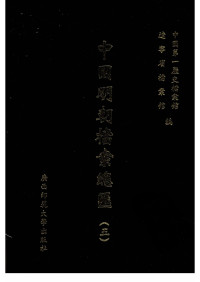 中國第一歷史檔案館
遼寧省檔案館
編
中國明朝檔案總匯
(三)
廣西師範大學出版社